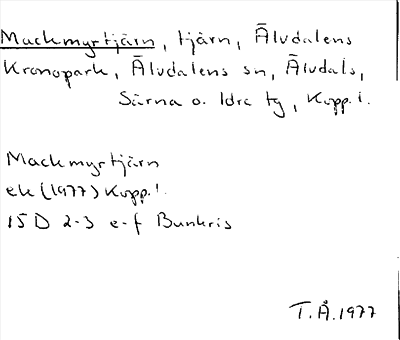 Mackmyrtjärn, tjärn, Älvdalens
Kronopark, Älvdalens sn, Älvdals,
Särna o. Idre tg, Kopp.l.
Mackmyrtjärn
ek (1977) Kopp.l.
15 D 2-3 e-f Bunkris
T.Å.1977